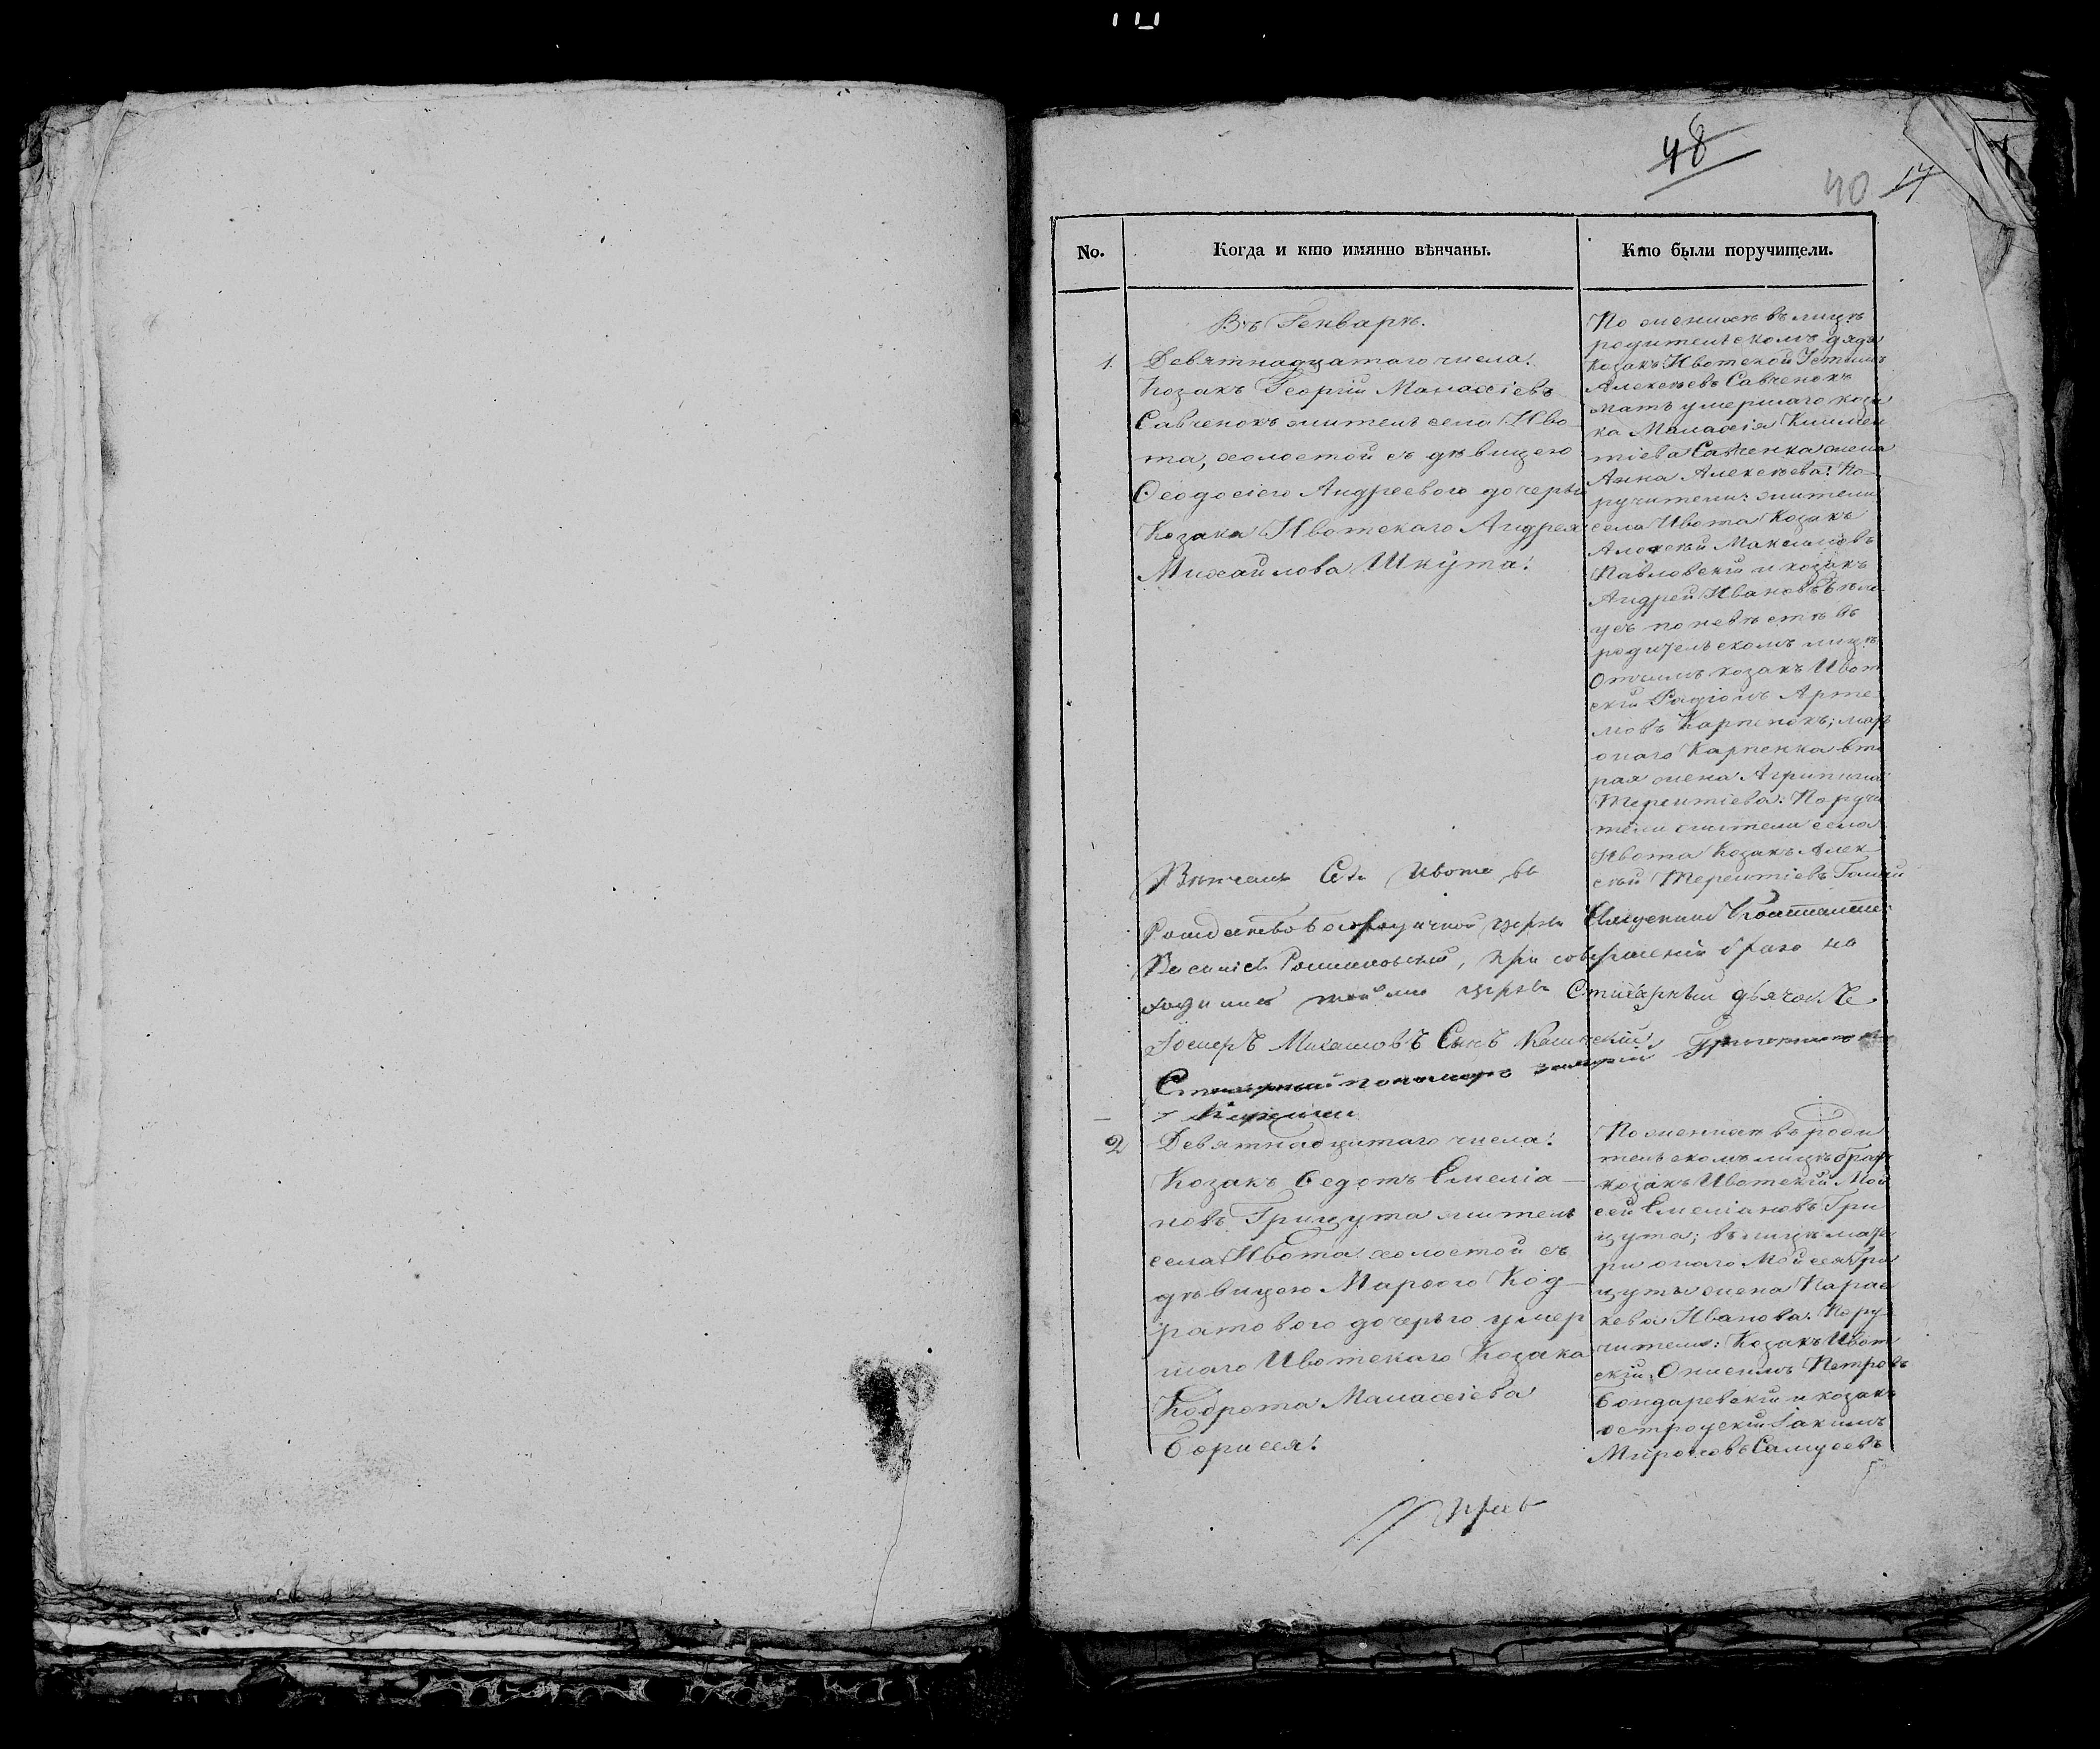 48
40 17
No.
Когда и кто имянно вѣнчаны.
Кто были поручители.
Въ Генварѣ.
1.
Девятнадцатаго числа.
Козакъ Георгій Манасіевъ
Савченокъ житель села Иво
та, холостой съ дѣвицею
Ѳеодосіею Андреевою дочерью
Козака Ивотскаго Андрея
Михайлова Шкута.
По женихѣ въ лицѣ
родительскомъ дядя
Козакъ Ивотской
Алексѣевъ Савченокъ
мать умершаго коза
ка Манасія
тіева Савченка жена
Анна Алексѣева: По
ручители: жители
села Ивота Козакъ
Алексѣй Максимовъ
Павловскій и козакъ
Андрей Ивановъ
по невѣстѣ въ
родительскомъ лицѣ
Отчимъ козакъ Ивот
скій Родіонъ Арте
мовъ Карпенокъ; мать
онаго Карпенка вто
рая жена Агрипина
Терентіева: Поручи
тели жители села
Ивота Козакъ Алек
сѣй Терентіевъ
Вѣнчалъ Села Ивота въ
Рождествобогородичной церкви Священникъ
Василіевъ Рошаковскій, при совершеніи брака на
ходились той же церкви Стихарный дьячокъ
Михайловъ Сынъ
Стихарный пономарь
2
Девятнадцатаго числа.
Козакъ Ѳедотъ Емеліа
новъ Грицута житель
села Ивота холостой съ
дѣвицею Марѳою Код
ратовою дочерью умер
шаго Ивотскаго Козака
Кодрата Манасіева
Борисея.
По женихѣ въ роди
тельскомъ лицѣ братъ
козакъ Ивотскій Мой
сей Емеліановъ Гри
цута; въ лицѣ мате
ри онаго Мойсея Гри
цуты жена Парас
кева Иванова. Пору
чители: Козакъ Ивот
скій Онисимъ Петровъ
Бондаревскій и козакъ
Іакимъ
Мироновъ Самусевъ